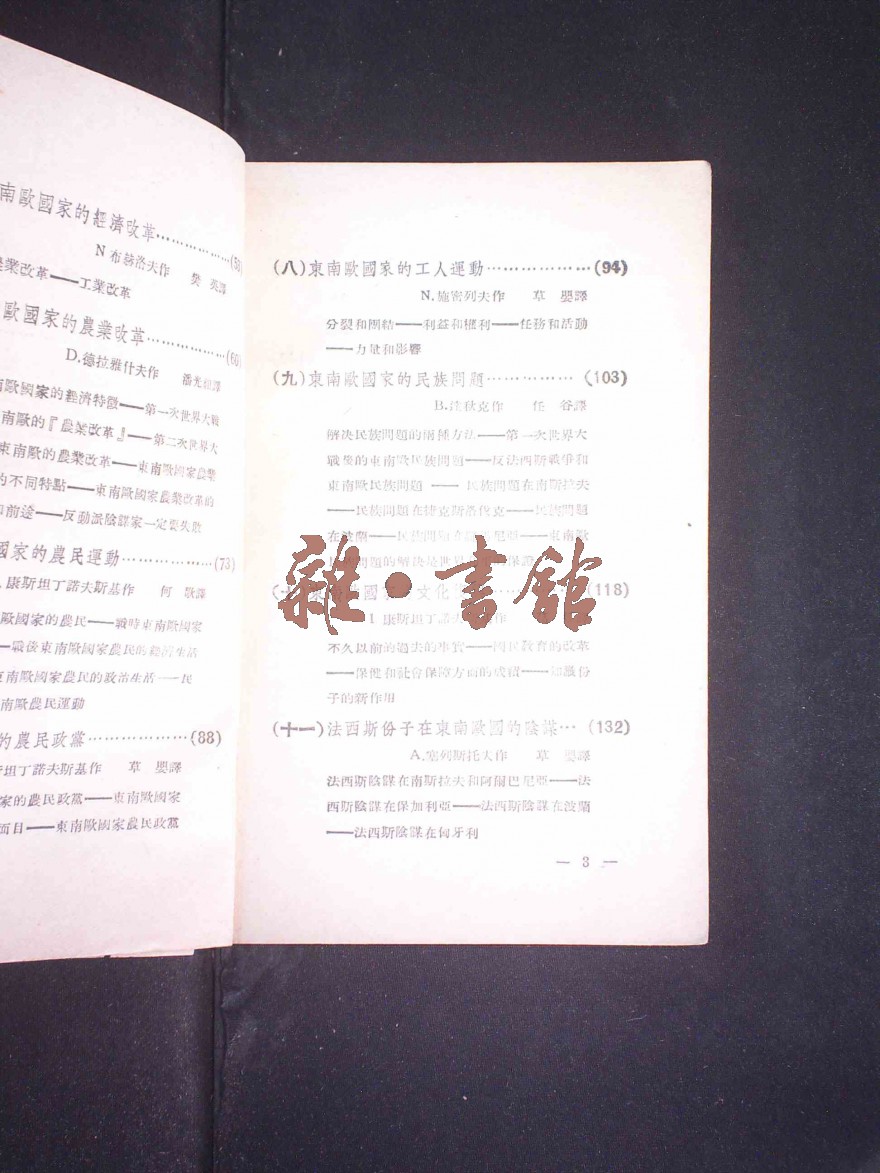 南歐國家的經濟改革………………(5
N 布赫洛夫作 樊 英譯
業改革——工業改革
歐國家的農業改革………………(6
D.德拉雅什夫作 潘光 譯
歐國家的經濟特徵——第一次世界大戰
南歐的『農業改革』——第二次世界大
東南歐的農業改革——東南歐國家農業
的不同特點——東南歐國家農業改革的
前途——反動派陰謀家一定要失敗
國家的農民運動………………(73)
康斯坦丁諾夫斯基作 何 歌譯
歐國家的農民——戰時東南歐國家
——戰後東南歐國家農民的經濟生活
東南歐國家農民的政治生活——民
南歐農民運動
的農民政黨………………(88)
坦丁諾夫斯基作 草 嬰譯
家的農民政黨——東南歐國家
面目——東南歐國家農民政黨
(八)東南歐國家的工人運動………………(94)
N.施密列夫作 草 嬰譯
分裂和團結——利益和權利——任務和活動
——力量和影響
(九)東南歐國家的民族問題……………(103)
B. 狄克作 任 谷譯
解決民族問題的兩種方法——第一次世界大
戰後的東南歐民族問題——反法西斯戰爭和
東南歐民族問題——民族問題在南斯拉夫
——民族問題在捷克斯洛伐克——民族問題
在波蘭——民族問題在 尼亞——東南歐
民族問題的解決是世界 保證
(十)東南歐國家 文化 ………(118)
I 康斯坦丁諾夫 作
不久以前的過去的事實——國民教育的改革
——保健和社會保障方面的成績——知識份
子的新作用
(十一)法西斯份子在東南歐國的陰謀…(132)
A.塞列斯托夫作 草 嬰譯
法西斯陰謀在南斯拉夫和阿爾巴尼亞——法
西斯陰謀在保加利亞——法西斯陰謀在波蘭
——法西斯陰謀在匈牙利
— 3 —
雜·書館